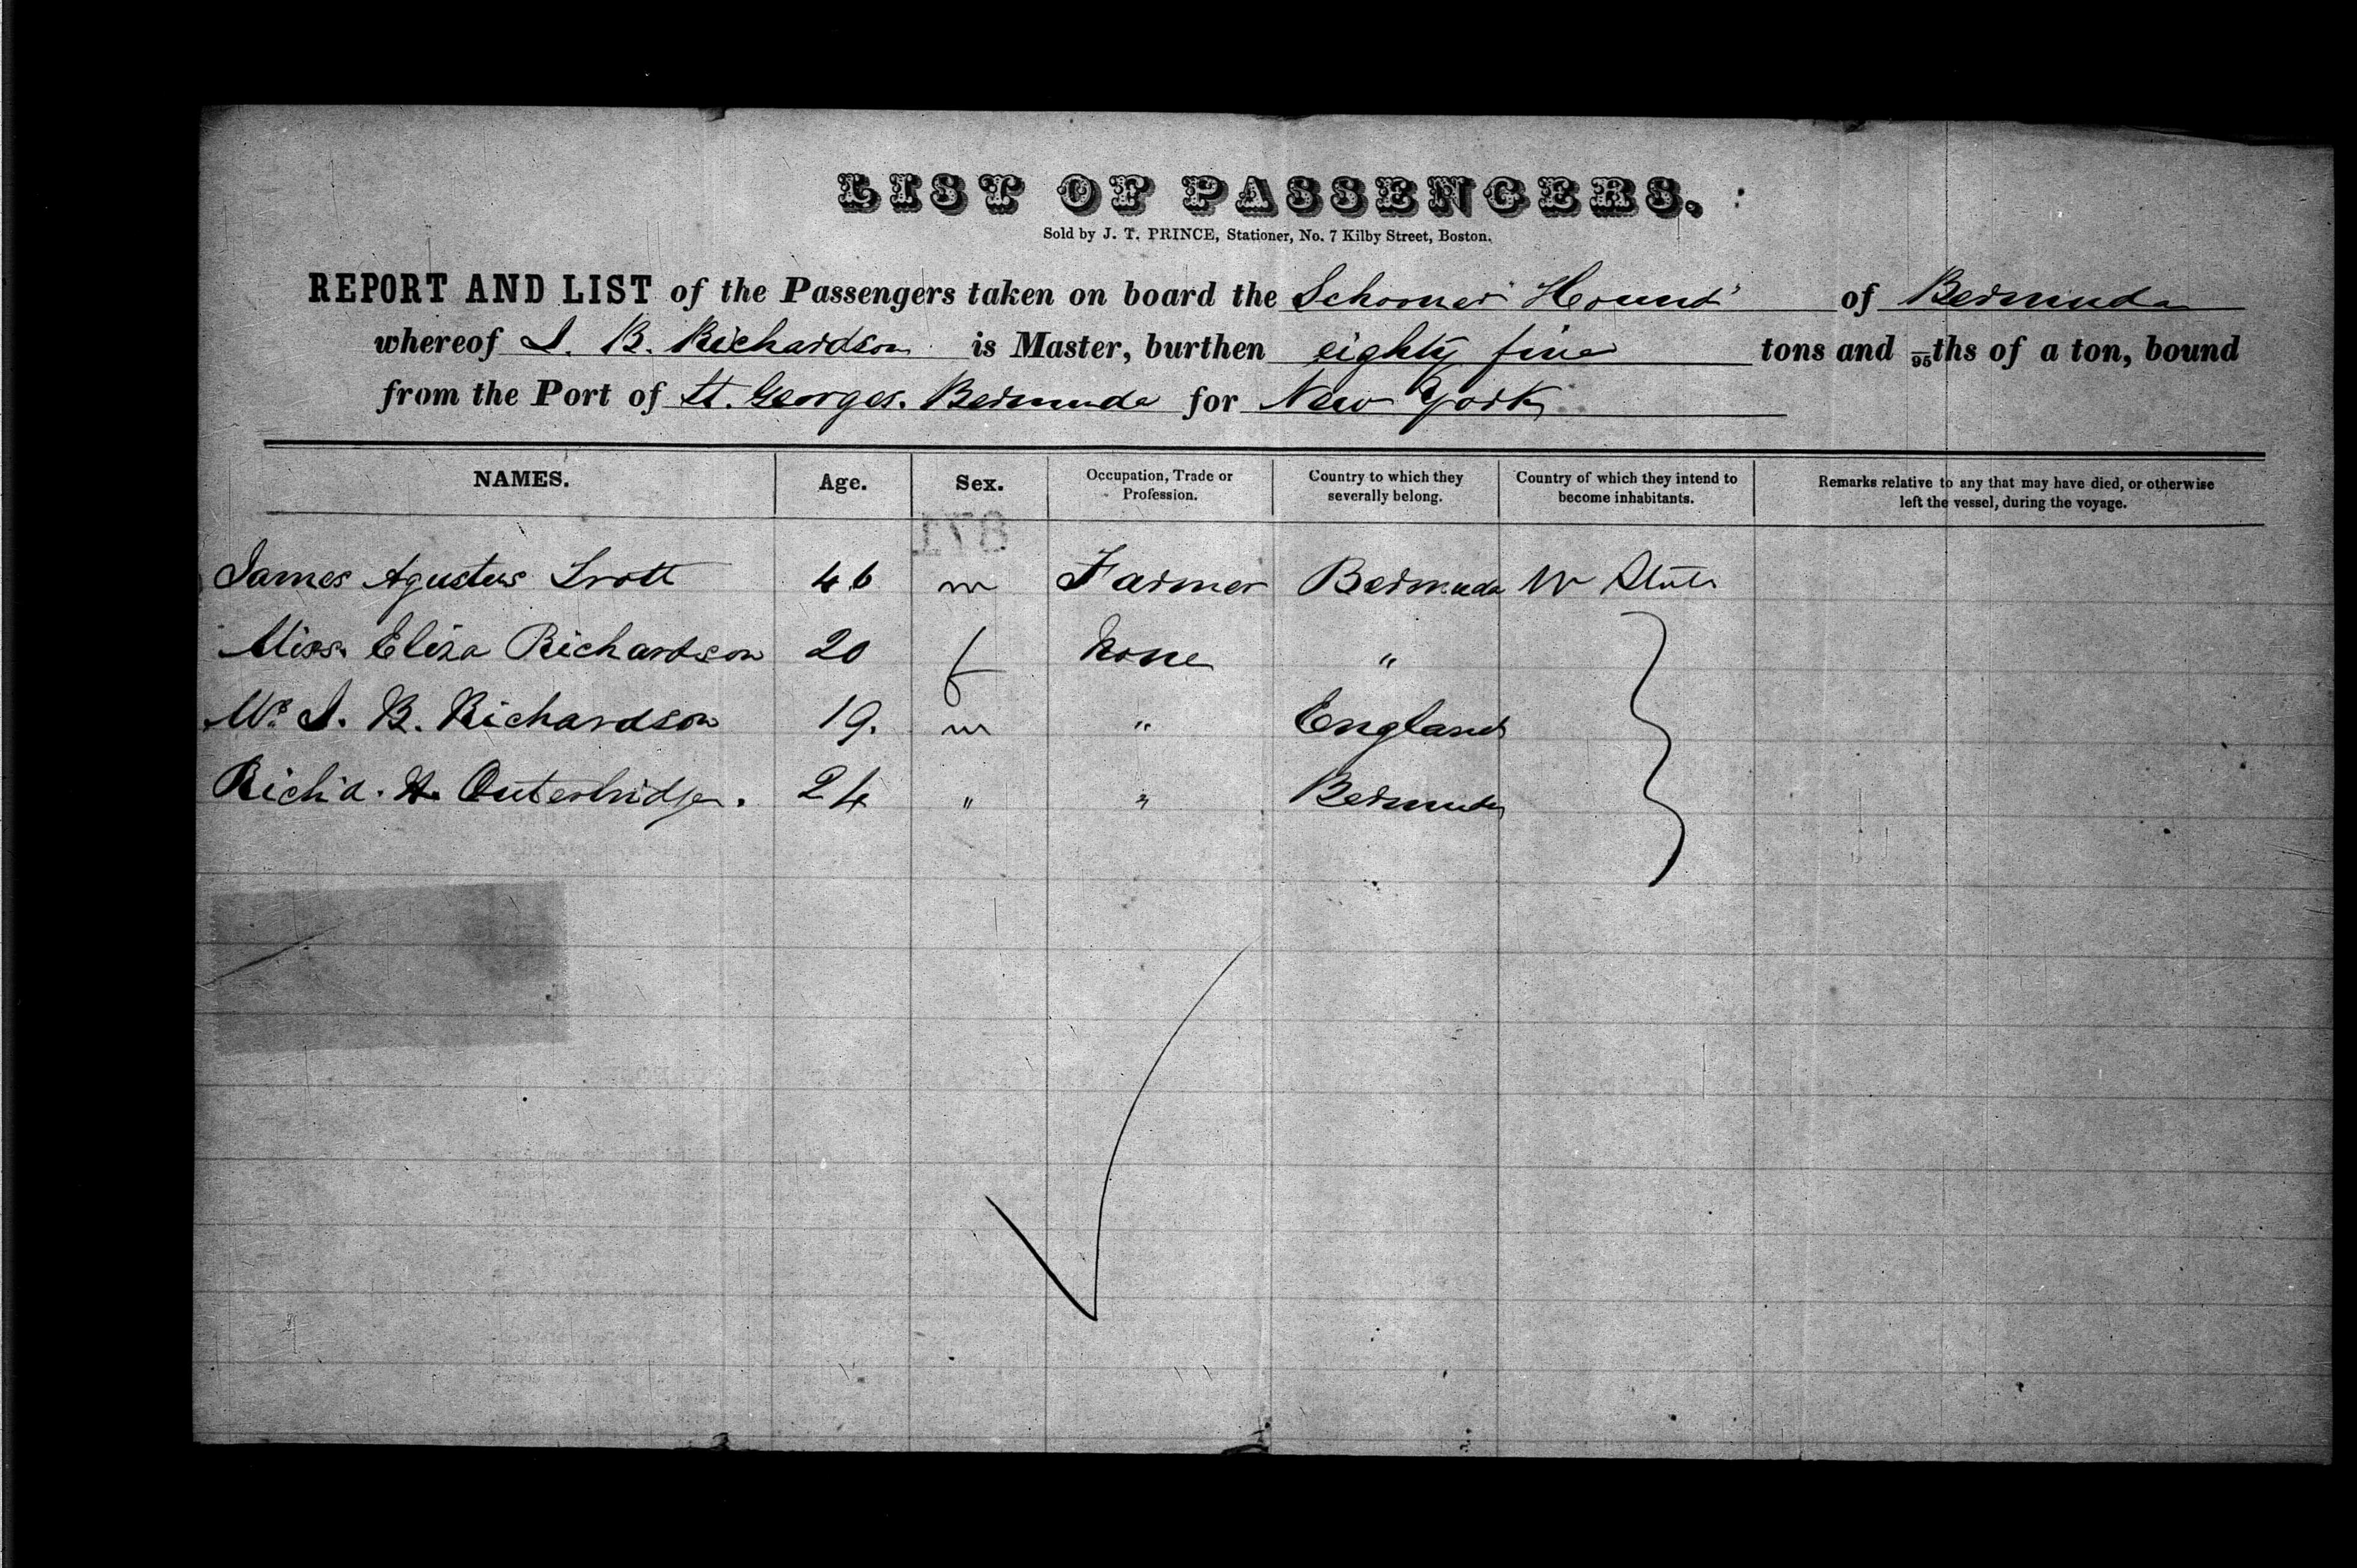 LIST OF PASSENGERS.
Sold by J. T. PRINCE, Stationer, No. 7 Kilby Street, Boston.
REPORT AND LIST of the Passengers taken on board the Schooner "Hound" of Bermuda
whereof J. B. Richardson is Master, burthen eighty five tons and /95ths of a ton, bound
from the Port of St. Georges. Bermuda for New York
NAMES. Age. Sex. Occupation, Trade or Profession. Country to which they severally belong. Country of which they intend to become inhabitants. Remarks relative to any that may have died, or otherwise left the vessel, during the voyage.
871
James Agustus Trott 46 m Farmer Bermuda States
Miss. Eliza Richardson 20 f None "
Mr. J. B. Richardson 19. m " England
Rich'd. H. Outerbridge. 24 " " Bermuda